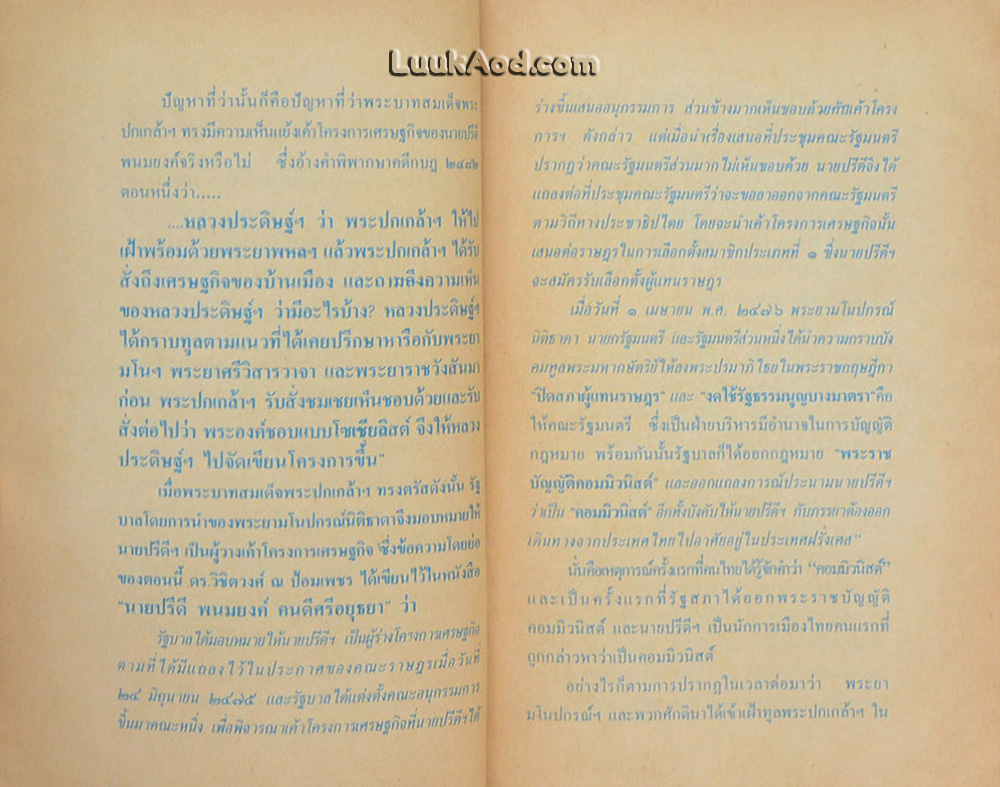 LuukAod.com
ปัญหาที่ว่านั้นก็คือปัญหาที่ว่าพระบาทสมเด็จพระ
ปกเกล้าฯ ทรงมีความเห็นแย้งเค้าโครงการเศรษฐกิจของนายปรีดี
พนมยงค์จริงหรือไม่ ซึ่งอ้างคำพิพากษาคดีกบฎ ๒๔๘๒
ตอนหนึ่งว่า.....
....หลวงประดิษฐ์ฯ ว่า พระปกเกล้าฯ ให้ไป
เฝ้าพร้อมด้วยพระยาพหลฯ แล้วพระปกเกล้าฯ ได้รับ
สั่งถึงเศรษฐกิจของบ้านเมือง และถามถึงความเห็น
ของหลวงประดิษฐ์ฯ ว่ามีอะไรบ้าง? หลวงประดิษฐ์ฯ
ได้กราบทูลตามแนวที่ได้เคยปรึกษาหารือกับพระยา
มโนฯ พระยาศรีวิสารวาจา และพระยาราชวังสันมา
ก่อน พระปกเกล้าฯ รับสั่งชมเชยเห็นชอบด้วยและรับ
สั่งต่อไปว่า พระองค์ชอบแบบโซเชียลิสต์ จึงให้หลวง
ประดิษฐ์ฯ ไปจัดเขียนโครงการขึ้น"
เมื่อพระบาทสมเด็จพระปกเกล้าฯ ทรงตรัสดังนั้น รัฐ
บาลโดยการนำของพระยามโนปกรณ์นิติธาดาจึงมอบหมายให้
นายปรีดีฯ เป็นผู้วางเค้าโครงการเศรษฐกิจ ซึ่งข้อความโดยย่อ
ของตอนนี้ ดร.วิชิตวงศ์ ณ ป้อมเพชร ได้เขียนไว้ในหนังสือ
"นายปรีดี พนมยงค์ คนดีศรีอยุธยา" ว่า
รัฐบาลได้มอบหมายให้นายปรีดีฯ เป็นผู้ร่างโครงการเศรษฐกิจ
ตามที่ได้มีแถลงไว้ในประกาศของคณะราษฎรเมื่อวันที่
๒๔ มิถุนายน ๒๔๗๕ และรัฐบาลได้แต่งตั้งคณะอนุกรรมการ
ขึ้นมาคณะหนึ่ง เพื่อพิจารณาเค้าโครงการเศรษฐกิจที่นายปรีดีฯได้
ร่างขึ้นเสนออนุกรรมการ ส่วนข้างมากเห็นชอบด้วยกับเค้าโครง
การฯ ดังกล่าว แต่เมื่อนำเรื่องเสนอที่ประชุมคณะรัฐมนตรี
ปรากฎว่าคณะรัฐมนตรีส่วนมากไม่เห็นชอบด้วย นายปรีดีจึงได้
แถลงต่อที่ประชุมคณะรัฐมนตรีว่าจะขอลาออกจากคณะรัฐมนตรี
ตามวิถีทางประชาธิปไตย โดยจะนำเค้าโครงการเศรษฐกิจนั้น
เสนอต่อราษฎรในการเลือกตั้งสมาชิกประเภทที่ ๑ ซึ่งนายปรีดีฯ
จะสมัครรับเลือกตั้งผู้แทนราษฎร
เมื่อวันที่ ๑ เมษายน พ.ศ. ๒๔๗๖ พระยามโนปกรณ์
นิติธาดา นายกรัฐมนตรี และรัฐมนตรีส่วนหนึ่งได้นำความกราบบัง
คมทูลพระมหากษัตริย์ให้ลงพระปรมาภิไธยในพระราชกฤษฎีกา
"ปิดสภาผู้แทนราษฎร" และ "งดใช้รัฐธรรมนูญบางมาตรา"คือ
ให้คณะรัฐมนตรี ซึ่งเป็นฝ่ายบริหารมีอำนาจในการบัญญัติ
กฎหมาย พร้อมกันนั้นรัฐบาลก็ได้ออกกฎหมาย "พระราช
บัญญัติคอมมิวนิสต์" และออกแถลงการณ์ประนามนายปรีดีฯ
ว่าเป็น "คอมมิวนิสต์" อีกทั้งบังคับให้นายปรีดีฯ กับภรรยาต้องออก
เดินทางจากประเทศไทยไปอาศัยอยู่ในประเทศฝรั่งเศส"
นั่นคือเหตุการณ์ครั้งแรกที่คนไทยได้รู้จักคำว่า "คอมมิวนิสต์"
และเป็นครั้งแรกที่รัฐสภาได้ออกพระราชบัญญัติ
คอมมิวนิสต์ และนายปรีดีฯ เป็นนักการเมืองไทยคนแรกที่
ถูกกล่าวหาว่าเป็นคอมมิวนิสต์
อย่างไรก็ตามการปรากฎในเวลาต่อมาว่า พระยา
มโนปกรณ์ฯ และพวกศักดินาได้เข้าเฝ้าทูลพระปกเกล้าฯ ใน